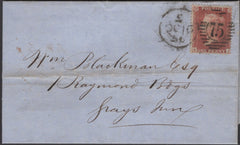 Wm Blackman Esq
1 Raymond Bdgs
Grays Inn
75